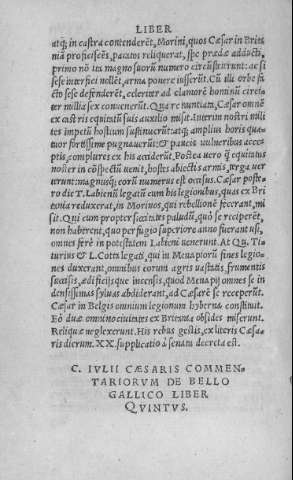 LIBER
atq; in castra contenderēt, Morini, quos Cæsar in Britā
nia proficiscēs, pacatos reliquerat, spe prædæ adducti,
primo nō ita magno suorū numero circūsteterunt: ac si
sese interfici nollēt, arma ponere iusserūt. Cū illi orbe fa
cto sese defenderēt, celeriter ad clamorē hominū circi-
ter millia sex conuenerūt. Qua re nuntiata, Cæsar omnē
ex castris equitatū suis auxilio misit. Interim nostri mili
tes impetū hostium sustinuerūt: atq; amplius horis qua-
tuor fortissime pugnauerūt: & paucis vulneribus acce-
ptis, complures ex his occiderūt. Postea uero q̄ equitatus
noster in cōspectū uenit, hostes abiectis armis, terga uer
terunt: magnusq; eorū numerus est occisus. Cæsar poste
ro die T. Labienū legatū cum his legionibus, quas ex Bri
tania reduxerat, in Morinos, qui rebellionē fecerant, mi
sit. Qui cum propter siccitates paludū, quò se reciperēt,
non haberent, quo perfugio superiore anno fuerant usi,
omnes ferè in potestatem Labieni uenerunt. At Qu. Ti-
turius & L. Cotta legati, qui in Menapiorū fines legio-
nes duxerant, omnibus eorum agris uastatis, frumentis
succisis, ædificijsque incensis, quod Menapij omnes se in
densissimas syluas abdiderant, ad Cæsarē se receperūt.
Cæsar in Belgis omnium legionum hyberna constituit.
Eò duæ omnino ciuitates ex Britania obsides miserunt.
Reliquæ neglexerunt. His rebus gestis, ex literis Cæsa-
ris dierum. XX. supplicatio à senatu decreta est.
C. IVLII CÆSARIS COMMEN-
TARIORVM DE BELLO
GALLICO LIBER
QVINTVS.